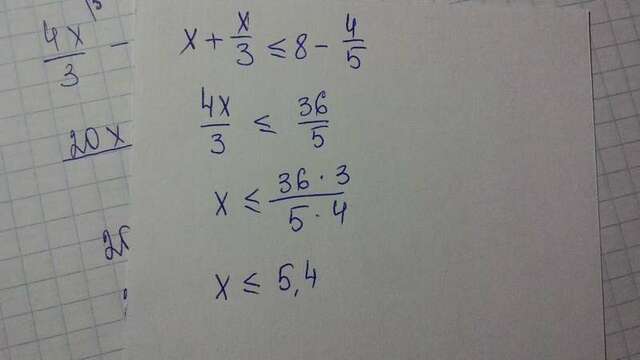 4x/3 −
20x
x + x/3 ≤ 8 − 4/5
4x/3 ≤ 36/5
x ≤ 36 · 3 / 5 · 4
x ≤ 5,4